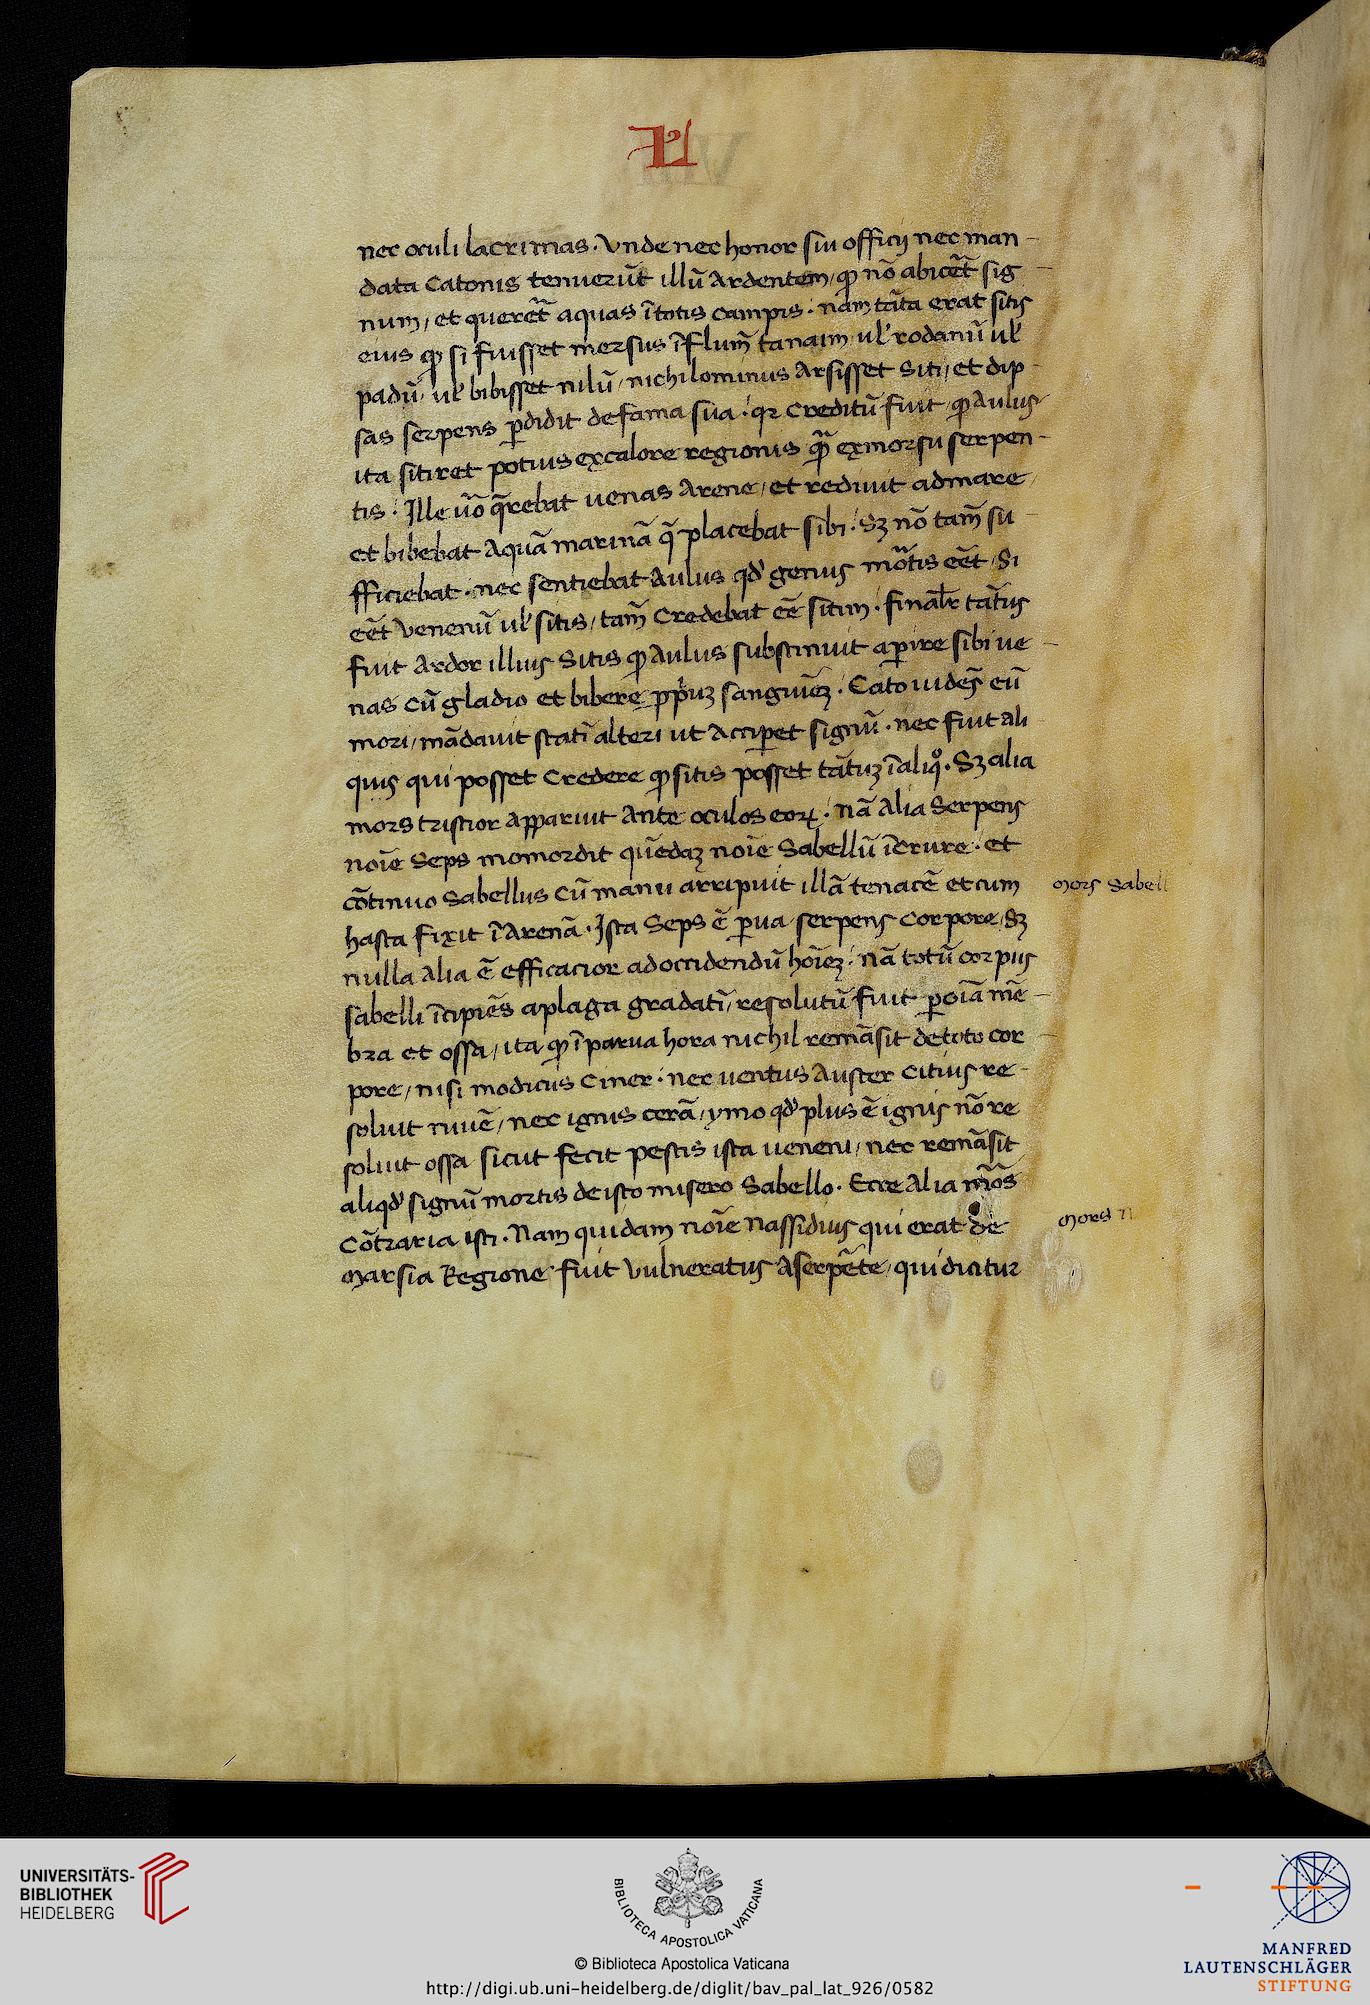 L
nec oculi lacrimas. Vnde nec honor sui officij nec man-
data Catonis tenuerūt illū Ardentem, qꝫ nō abicēt sig-
num, et querēt aquas ī totis campis. nam tāta erat sitis
eius qꝫ si fuisset mersus ī flum̄ tanaim ul' rodanū ul'
padū, ul' bibisset nilū, nichilominus Arsisset Siti, et dip-
sas serpens ꝑdidit de fama sua. qr Creditū fuit qꝫ Aulus
ita sitiret potius ex calore regionis qᷓ ex morsu serpen-
tis. Ille u̅o q̄rebat uenas Arene, et rediuit ad mare
et bibebat Aquā marinā q̄ placebat sibi. Sꝫ nō tam̄ su-
fficiebat. nec sentiebat Aulus qd' genus mōtis eēt, Si
eēt Venenū ul' sitis, tam̄ Credebat eē sitim. finalr̄ tātus
fuit Ardor illius Sitis qꝫ Aulus substinuit aꝑire sibi ue-
nas cū gladio et bibere ꝓpriuꝫ sanguīeꝫ. Cato uidēs eū
mori, mādauit statī alteri ut Acciꝑet signū. nec fuit ali
quis qui posset Credere qꝫ sitis posset tātuꝫ ī aliqᵒ. Sꝫ alia
mors tristior apparuit Ante oculos eoꝝ. nā Alia Serpens
noīe Seps momordit quēdaꝫ noīe Sabellū ī crure. et
cōtinuo Sabellus Cū manu arripuit illā tenacē et cum
hasta fixit ī Arenā. Ista Seps ē ꝑua serpens Corpore, sꝫ
nulla Alia ē efficacior ad occidendū hoīeꝫ. nā totū corpus
sabelli īcipiēs a plaga gradatī, resolutū fuit ꝑ oīa mē-
bra et ossa, ita qꝫ ī parua hora nichil remāsit de toto cor-
pore, nisi modicus Ciner. nec uentus Auster Citius re-
soluit niuē, nec ignis cerā, ymo qd' plus ē ignis nō re
soluit ossa sicut fecit pestis ista ueneni, nec remāsit
aliqd' signū mortis de isto misero Sabello. Ecce Alia mōs
Cōtraria isti. Nam quidam noīe Nassidius qui erat de
Marsia Regione fuit Vulneratus A serpēte, qui dicitur
Mors Sabell
Mors N
UNIVERSITÄTS-
BIBLIOTHEK
HEIDELBERG
BIBLIOTECA APOSTOLICA VATICANA
© Biblioteca Apostolica Vaticana
http://digi.ub.uni-heidelberg.de/diglit/bav_pal_lat_926/0582
MANFRED
LAUTENSCHLÄGER
STIFTUNG